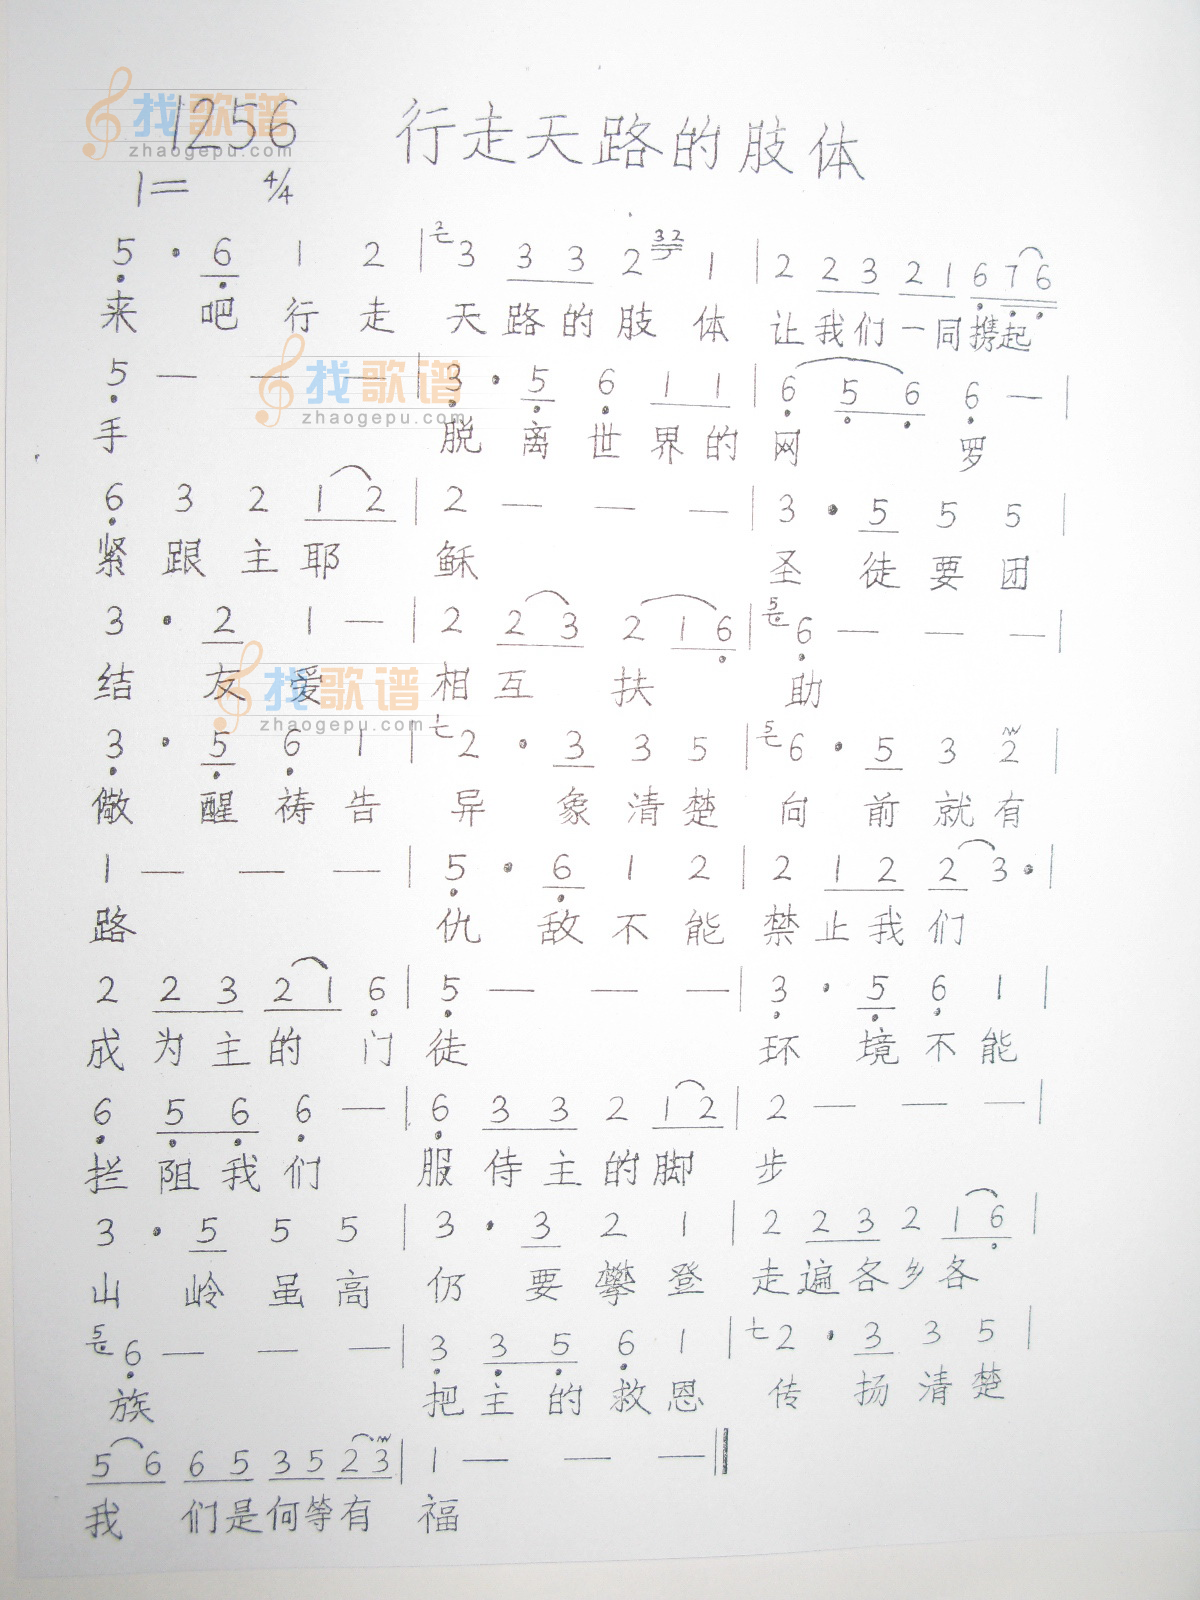 1256 行走天路的肢体
1= 4/4
5 · 6 1 2 | 3 3 3 2 32 1 | 2 2 3 2 1 6 7 6
来吧行走天路的肢体让我们一同携起
5 — — — | 3 · 5 6 1 1 | 6 5 6 6 — |
手 脱离世界的网罗
6 3 2 1 2 | 2 — — — | 3 · 5 5 5 |
紧跟主耶稣 圣徒要团
3 · 2 1 — | 2 2 3 2 1 6 | 5 6 — — — |
结友爱相互扶助
3 · 5 6 1 | 2 · 3 3 5 | 5 6 · 5 3 2 |
儆醒祷告异象清楚向前就有
1 — — — | 5 · 6 1 2 | 2 1 2 2 3 · |
路 仇敌不能禁止我们
2 2 3 2 1 6 | 5 — — — | 3 · 5 6 1 |
成为主的门徒 环境不能
6 5 6 6 — | 6 3 3 2 1 2 | 2 — — — |
拦阻我们服侍主的脚步
3 · 5 5 5 | 3 · 3 2 1 | 2 2 3 2 1 6 |
山岭虽高仍要攀登走遍各乡各
5 6 — — — | 3 3 5 6 1 | 2 · 3 3 5 |
族 把主的救恩传扬清楚
5 6 6 5 3 5 2 3 | 1 — — — ‖
我们是何等有福
找歌谱
zhaogepu.com
找歌谱
zhaogepu.com
找歌谱
zhaogepu.com